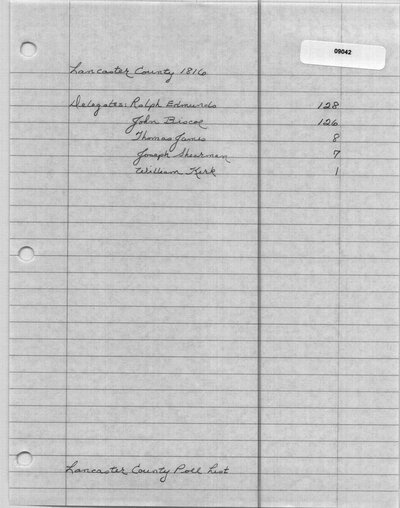 09042
Lancaster County 1816
Delegates: Ralph Edmunds 128
John Biscoe 126
Thomas James 8
Joseph Shearman 7
William Kirk 1
Lancaster County Poll List